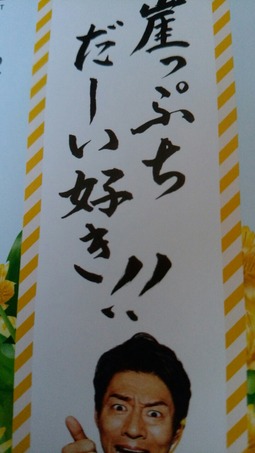 崖っぷち
だーい好き!!